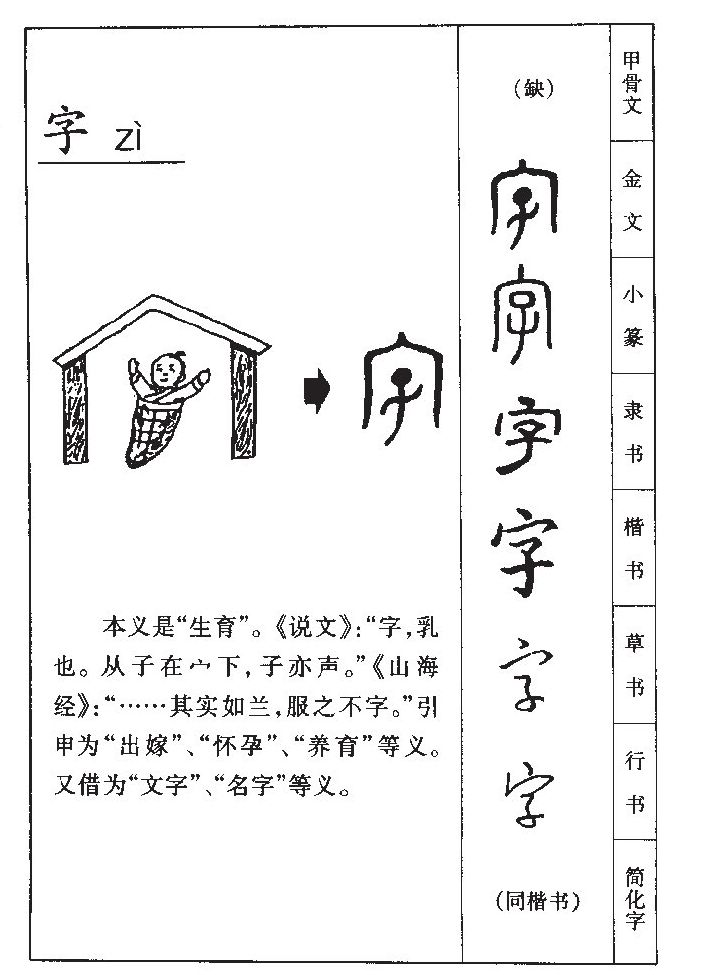 字 zì
字
本义是“生育”。《说文》：“字，乳
也。从子在宀下，子亦声。”《山海
经》：“……其实如兰，服之不字。”引
申为“出嫁”、“怀孕”、“养育”等义。
又借为“文字”、“名字”等义。
（缺） 甲骨文
字 金文
字 小篆
字 隶书
字 楷书
字 草书
字 行书
（同楷书） 简化字